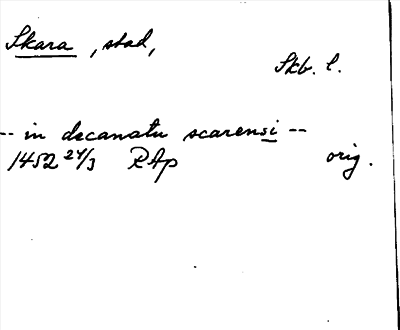 Skara, stad,
Skb. l.
-- in decanatu scarensi --
1452 24/3 RAp orig.